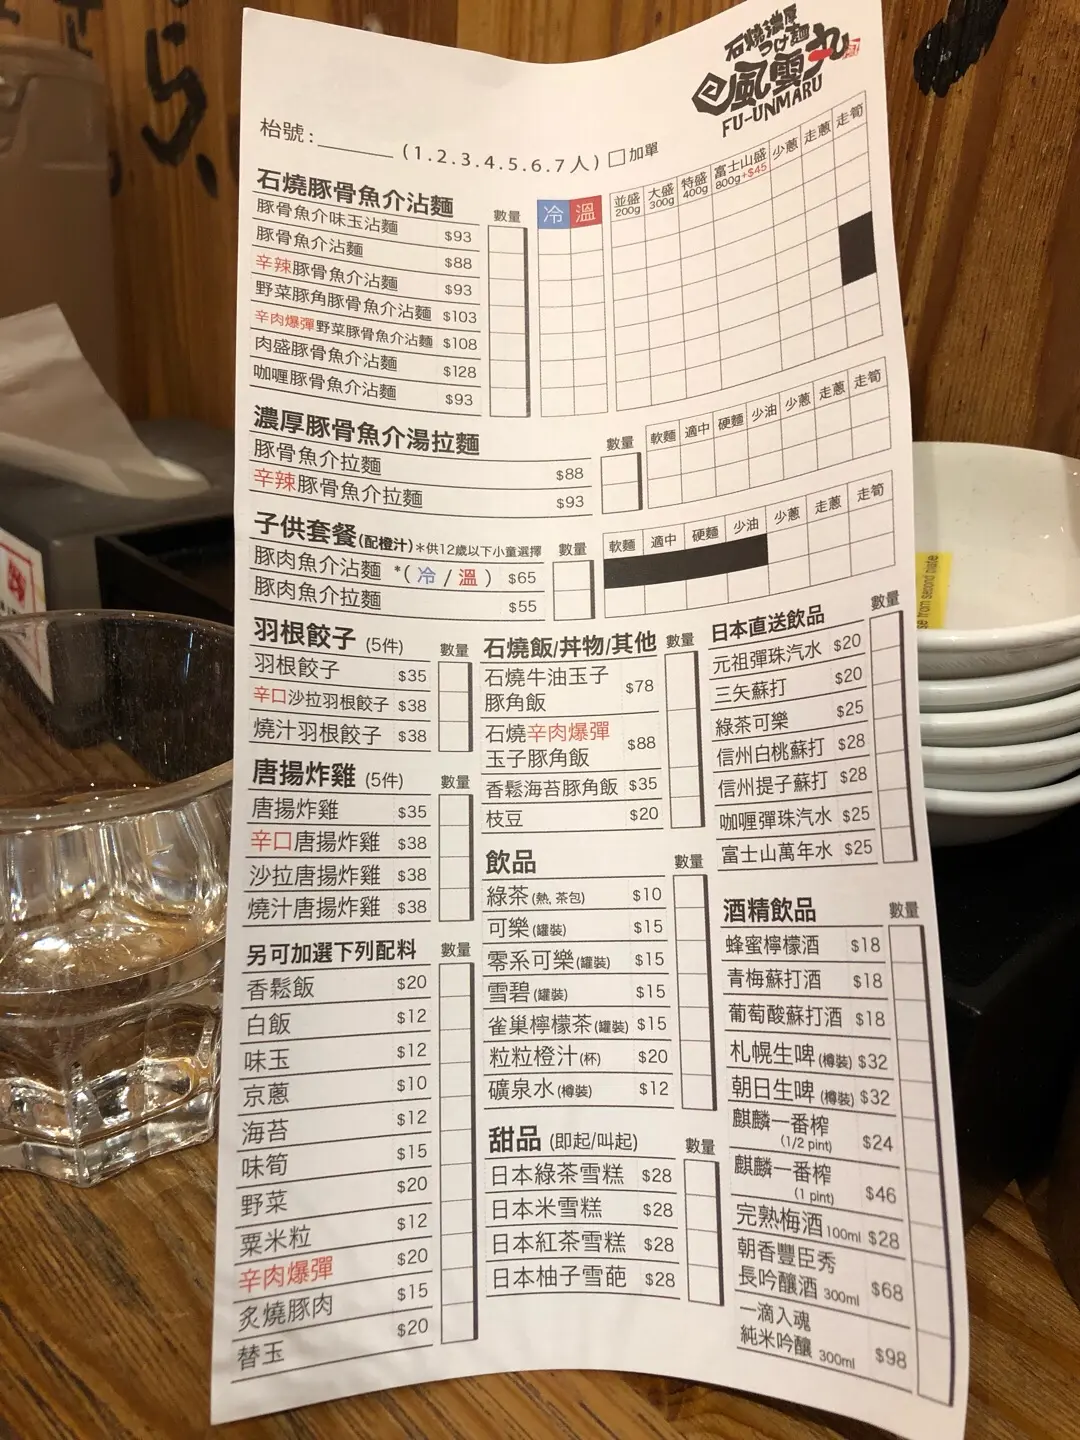 石燒濃厚
つけ麵
風雲丸
FU-UNMARU
枱號:________ (1.2.3.4.5.6.7人) □加單
石燒豚骨魚介沾麵 數量 冷 溫 並盛200g 大盛300g 特盛400g 富士山盛800g+$45 少蔥 走蔥 走筍
豚骨魚介味玉沾麵 $93
豚骨魚介沾麵 $88
辛辣豚骨魚介沾麵 $93
野菜豚角豚骨魚介沾麵 $103
辛肉爆彈野菜豚骨魚介沾麵 $108
肉盛豚骨魚介沾麵 $128
咖喱豚骨魚介沾麵 $93
濃厚豚骨魚介湯拉麵 數量 軟麵 適中 硬麵 少油 少蔥 走蔥 走筍
豚骨魚介拉麵 $88
辛辣豚骨魚介拉麵 $93
子供套餐(配橙汁)*供12歲以下小童選擇 數量 軟麵 適中 硬麵 少油 少蔥 走蔥 走筍
豚肉魚介沾麵 *(冷/溫) $65
豚肉魚介拉麵 $55
羽根餃子 (5件) 數量
羽根餃子 $35
辛口沙拉羽根餃子 $38
燒汁羽根餃子 $38
唐揚炸雞 (5件) 數量
唐揚炸雞 $35
辛口唐揚炸雞 $38
沙拉唐揚炸雞 $38
燒汁唐揚炸雞 $38
另可加選下列配料 數量
香鬆飯 $20
白飯 $12
味玉 $12
京蔥 $10
海苔 $12
味筍 $15
野菜 $20
粟米粒 $12
辛肉爆彈 $20
炙燒豚肉 $15
替玉 $20
石燒飯/丼物/其他 數量
石燒牛油玉子
豚角飯 $78
石燒辛肉爆彈
玉子豚角飯 $88
香鬆海苔豚角飯 $35
枝豆 $20
飲品 數量
綠茶(熱, 茶包) $10
可樂(罐裝) $15
零系可樂(罐裝) $15
雪碧(罐裝) $15
雀巢檸檬茶(罐裝) $15
粒粒橙汁(杯) $20
礦泉水(樽裝) $12
甜品 (即起/叫起) 數量
日本綠茶雪糕 $28
日本米雪糕 $28
日本紅茶雪糕 $28
日本柚子雪葩 $28
日本直送飲品 數量
元祖彈珠汽水 $20
三矢蘇打 $20
綠茶可樂 $25
信州白桃蘇打 $28
信州提子蘇打 $28
咖喱彈珠汽水 $25
富士山萬年水 $25
酒精飲品 數量
蜂蜜檸檬酒 $18
青梅蘇打酒 $18
葡萄酸蘇打酒 $18
札幌生啤(樽裝) $32
朝日生啤(樽裝) $32
麒麟一番榨
(1/2 pint) $24
麒麟一番榨
(1 pint) $46
完熟梅酒100ml $28
朝香豐臣秀
長吟釀酒 300ml $68
一滴入魂
純米吟釀 300ml $98